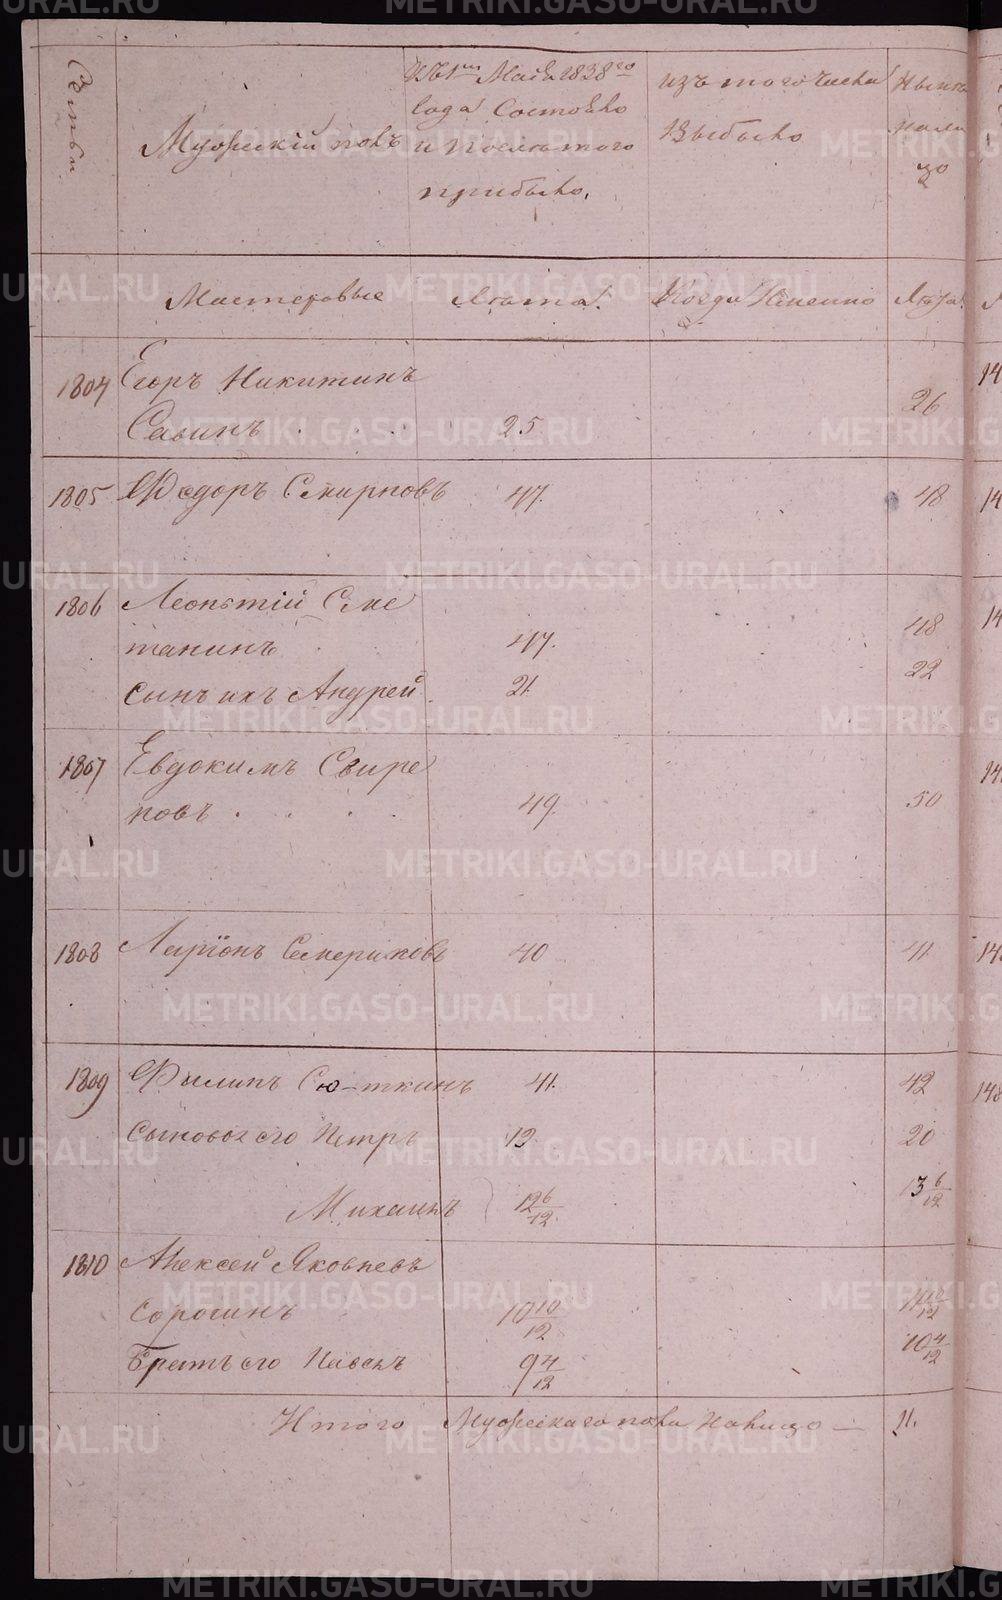 Семьи
Мужескій полъ
Къ 1му Маія 1838го
года Состояло
и После того
прибыло.
изъ того числа
Выбыло
Ныне
нали
цо
Мастеровые
Лѣта.
Когда Именно
Лѣта.
1804 Егоръ Никитинъ
Савинъ 25 26
1805 Федоръ Смирновъ 47. 48
1806 Леонтій Сме
танинъ 47. 48
сынъ ихъ Андрей 21. 22
1807 Евдокимъ Свире
повъ 49. 50
1808 Ларіонъ Семериковъ 40 41.
1809 Филипъ Сюткинъ 41. 42
Сыновья его Петръ 19 20
Михаилъ 12 6/12. 13 6/12
1810 Алексей Яковлевъ
Сорогинъ 10 10/12 11 10/12
Братъ его Павелъ 9 4/12 10 4/12
Итого Мужескаго пола налицо — 11.
METRIKI.GASO-URAL.RU